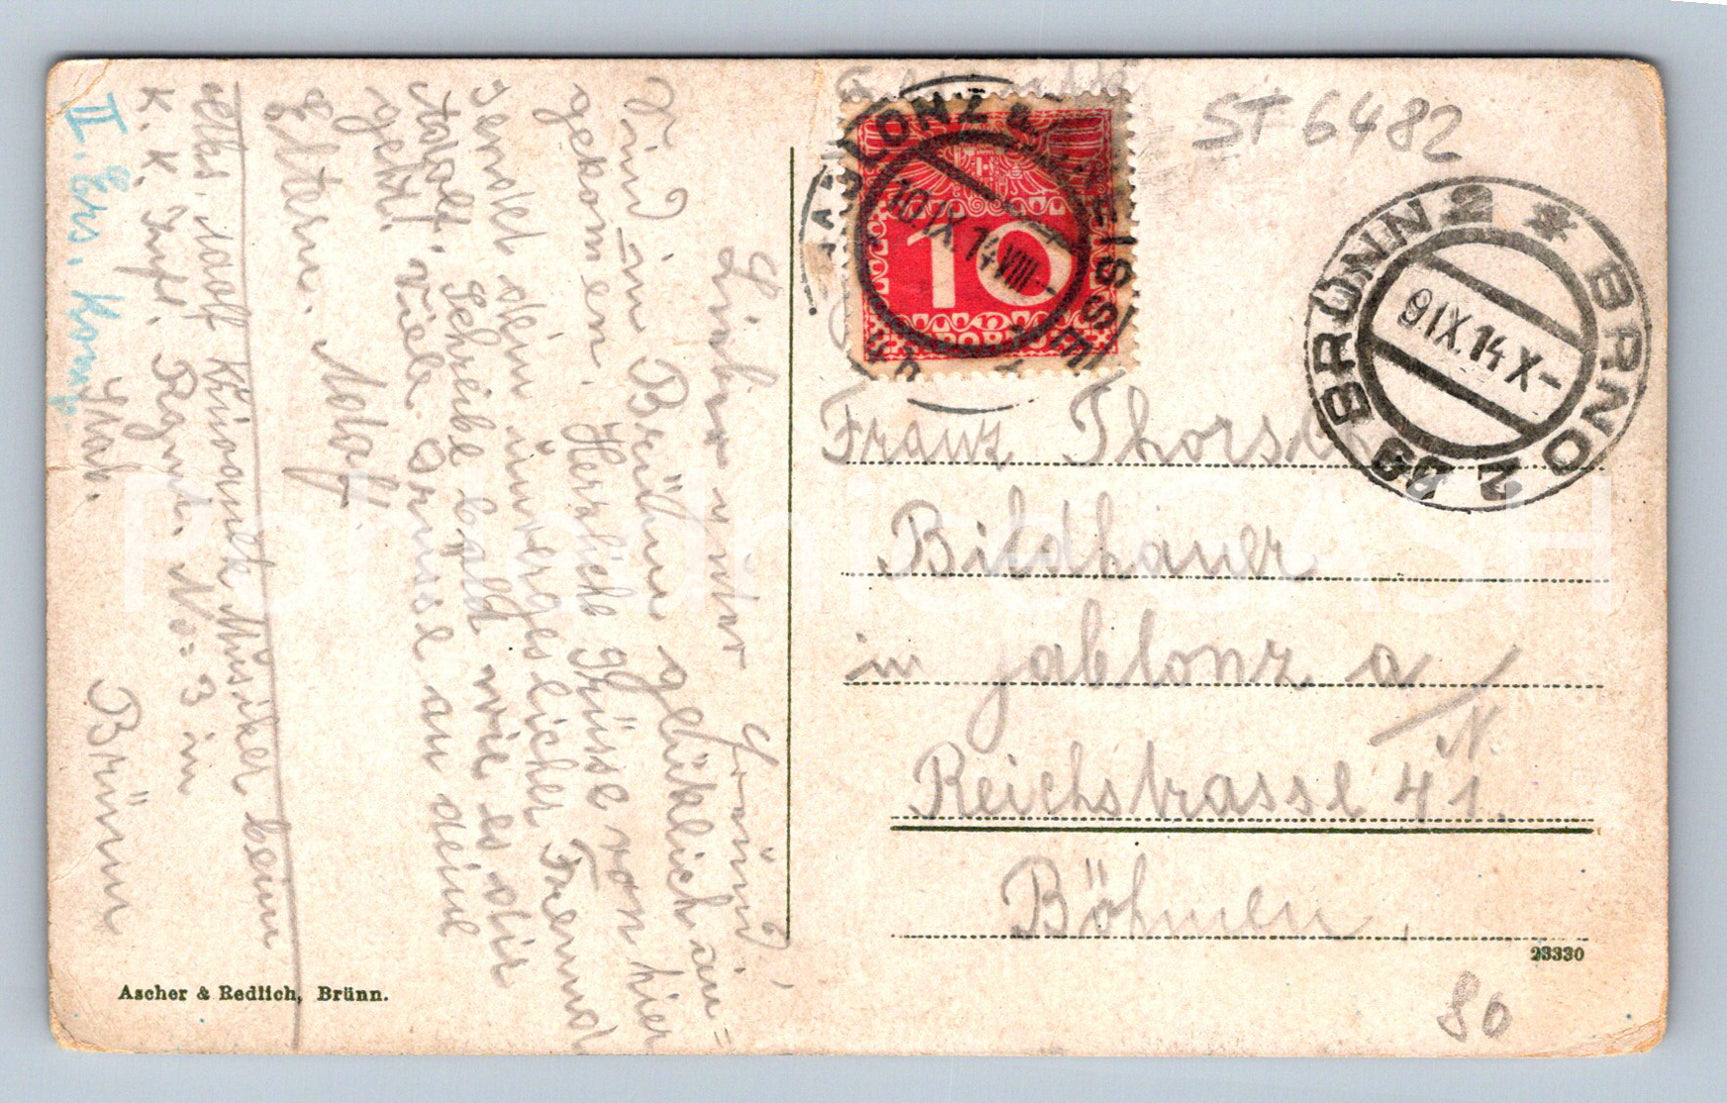 ST 6482
JABLONZ a. d. NEISSE
10 IX. 14 VIII–
10
PORTO
BRÜNN 2 * BRNO 2
9 IX. 14 X–
Franz Thorsch
Bildhauer
in Jablonz a/N.
Reichstrasse 41.
Böhmen.
23330
80
Lieber guter Freund,
Sind in Brünn glüklich an=
gekomen. Herrliche Grüse von hier
sendet dein unvergeslicher Freund
Adolf. Schreibe bald wie es dir
geht! Viele Grüsse an deine
Eltern. Adolf
Abs. Adolf Musiker beim
K. K. Inft. Regmt. No = 3 in
Brünn
II. Ers. Komp.
Ascher & Redlich, Brünn.